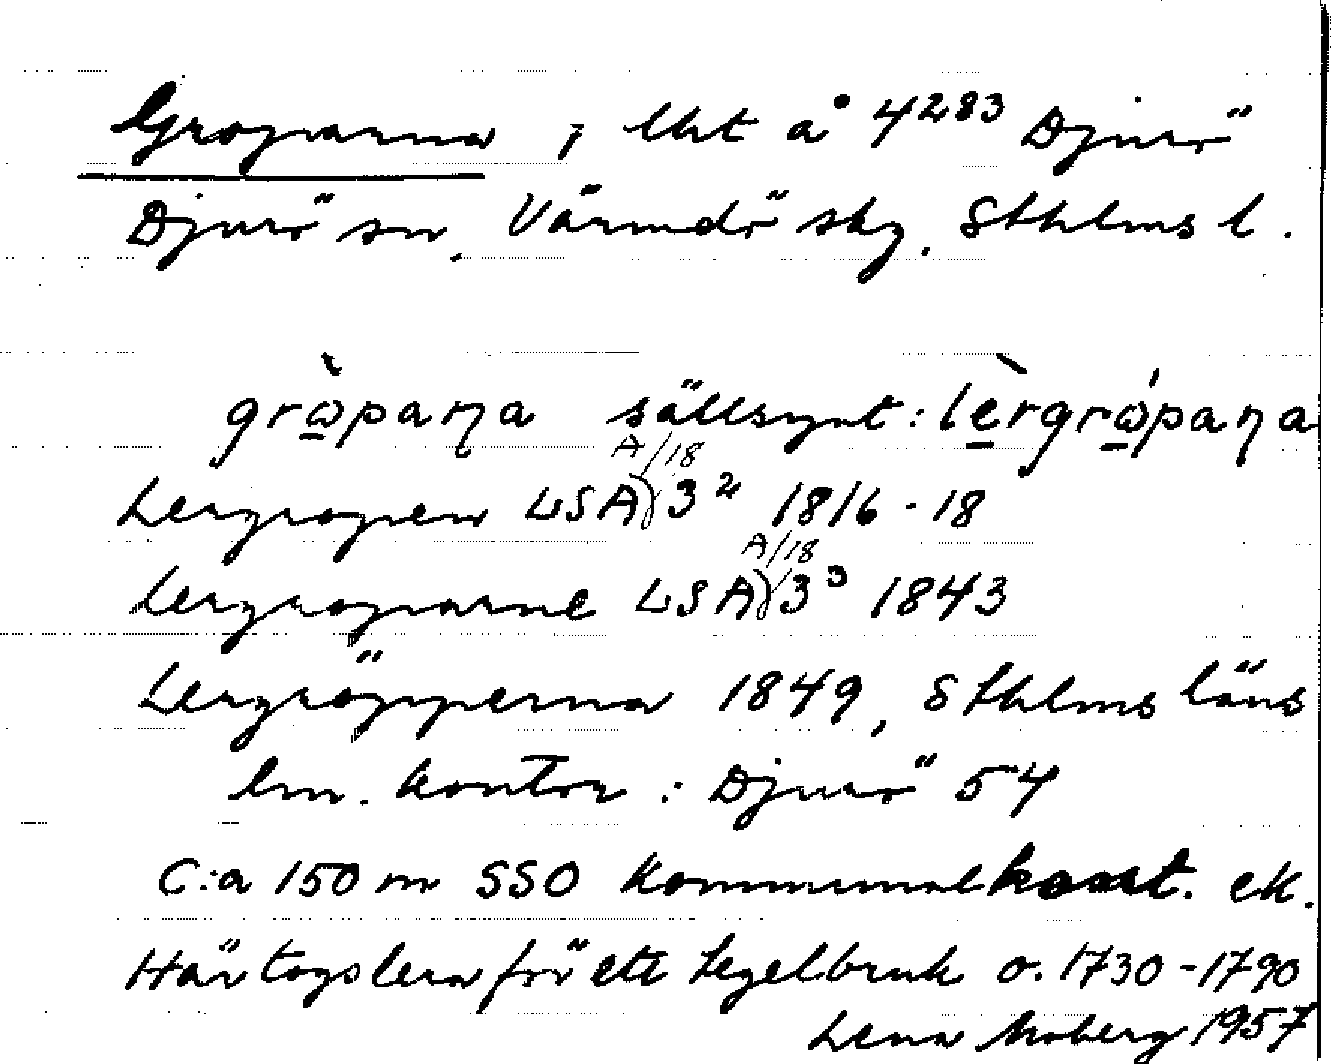 Groparna, lht å 4283 Djurö
Djurö sn, Värmdö sky. Sthlms l.
grò̲paŋa sällsynt: lè̲rgró̲paŋa
A/18
Lergropen LSA) 3² 1816-18
A/18
Lergroparne LSA) 3³ 1843
Lergröpperna 1849, Sthlms läns
lm. kontor: Djurö 54
C:a 150 m SSO kommunal ek.
Här togs lera för ett tegelbruk o. 1730-1790
Lena Moberg 1957